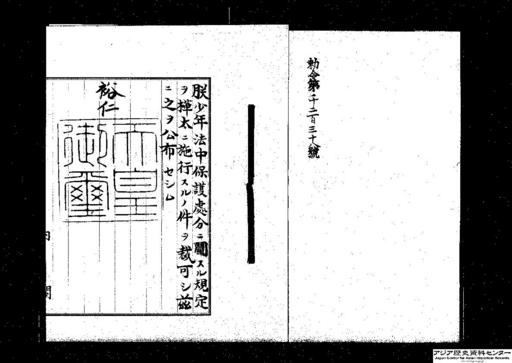 勅令第千二百三十八號
朕少年法中保護處分ニ關スル規定
ヲ樺太ニ施行スルノ件ヲ裁可シ茲
ニ之ヲ公布セシム
裕仁
天皇
御璽
内閣
アジア歴史資料センター
Japan Center for Asian Historical Records